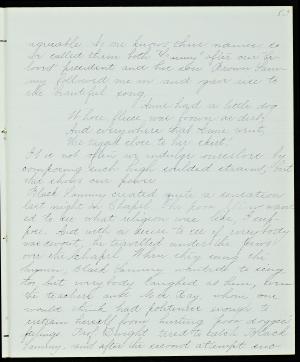 agreeable. No one knows their names so
we called them both "Sammy" after our be-
loved president and his son. Brown Sam-
my followed me in and gave use to
the beautiful song.
had a little dog
Whose fleece was brown as dirt,
And everywhere that went,
He tagged close to her skirt.
It is not often we indulge ourselves by
composing such high souled strains, but
this shows our power.
Black Sammy created quite a sensation
last night in Chapel. The poor fellow want-
ed to see what religion was like, I sup-
pose. And with a desire to see if everybody
was devout, he travelled under the pews
over the chapel. When they sang the
hymn, Black Sammy wanted to sing
too, but everybody laughed at him, even
the teachers and Miss whom one
would think had politeness enough to
restrain herself from hurting poor doggie's
feelings. Knight tried to catch Black
Sammy, and after the second attempt suc-